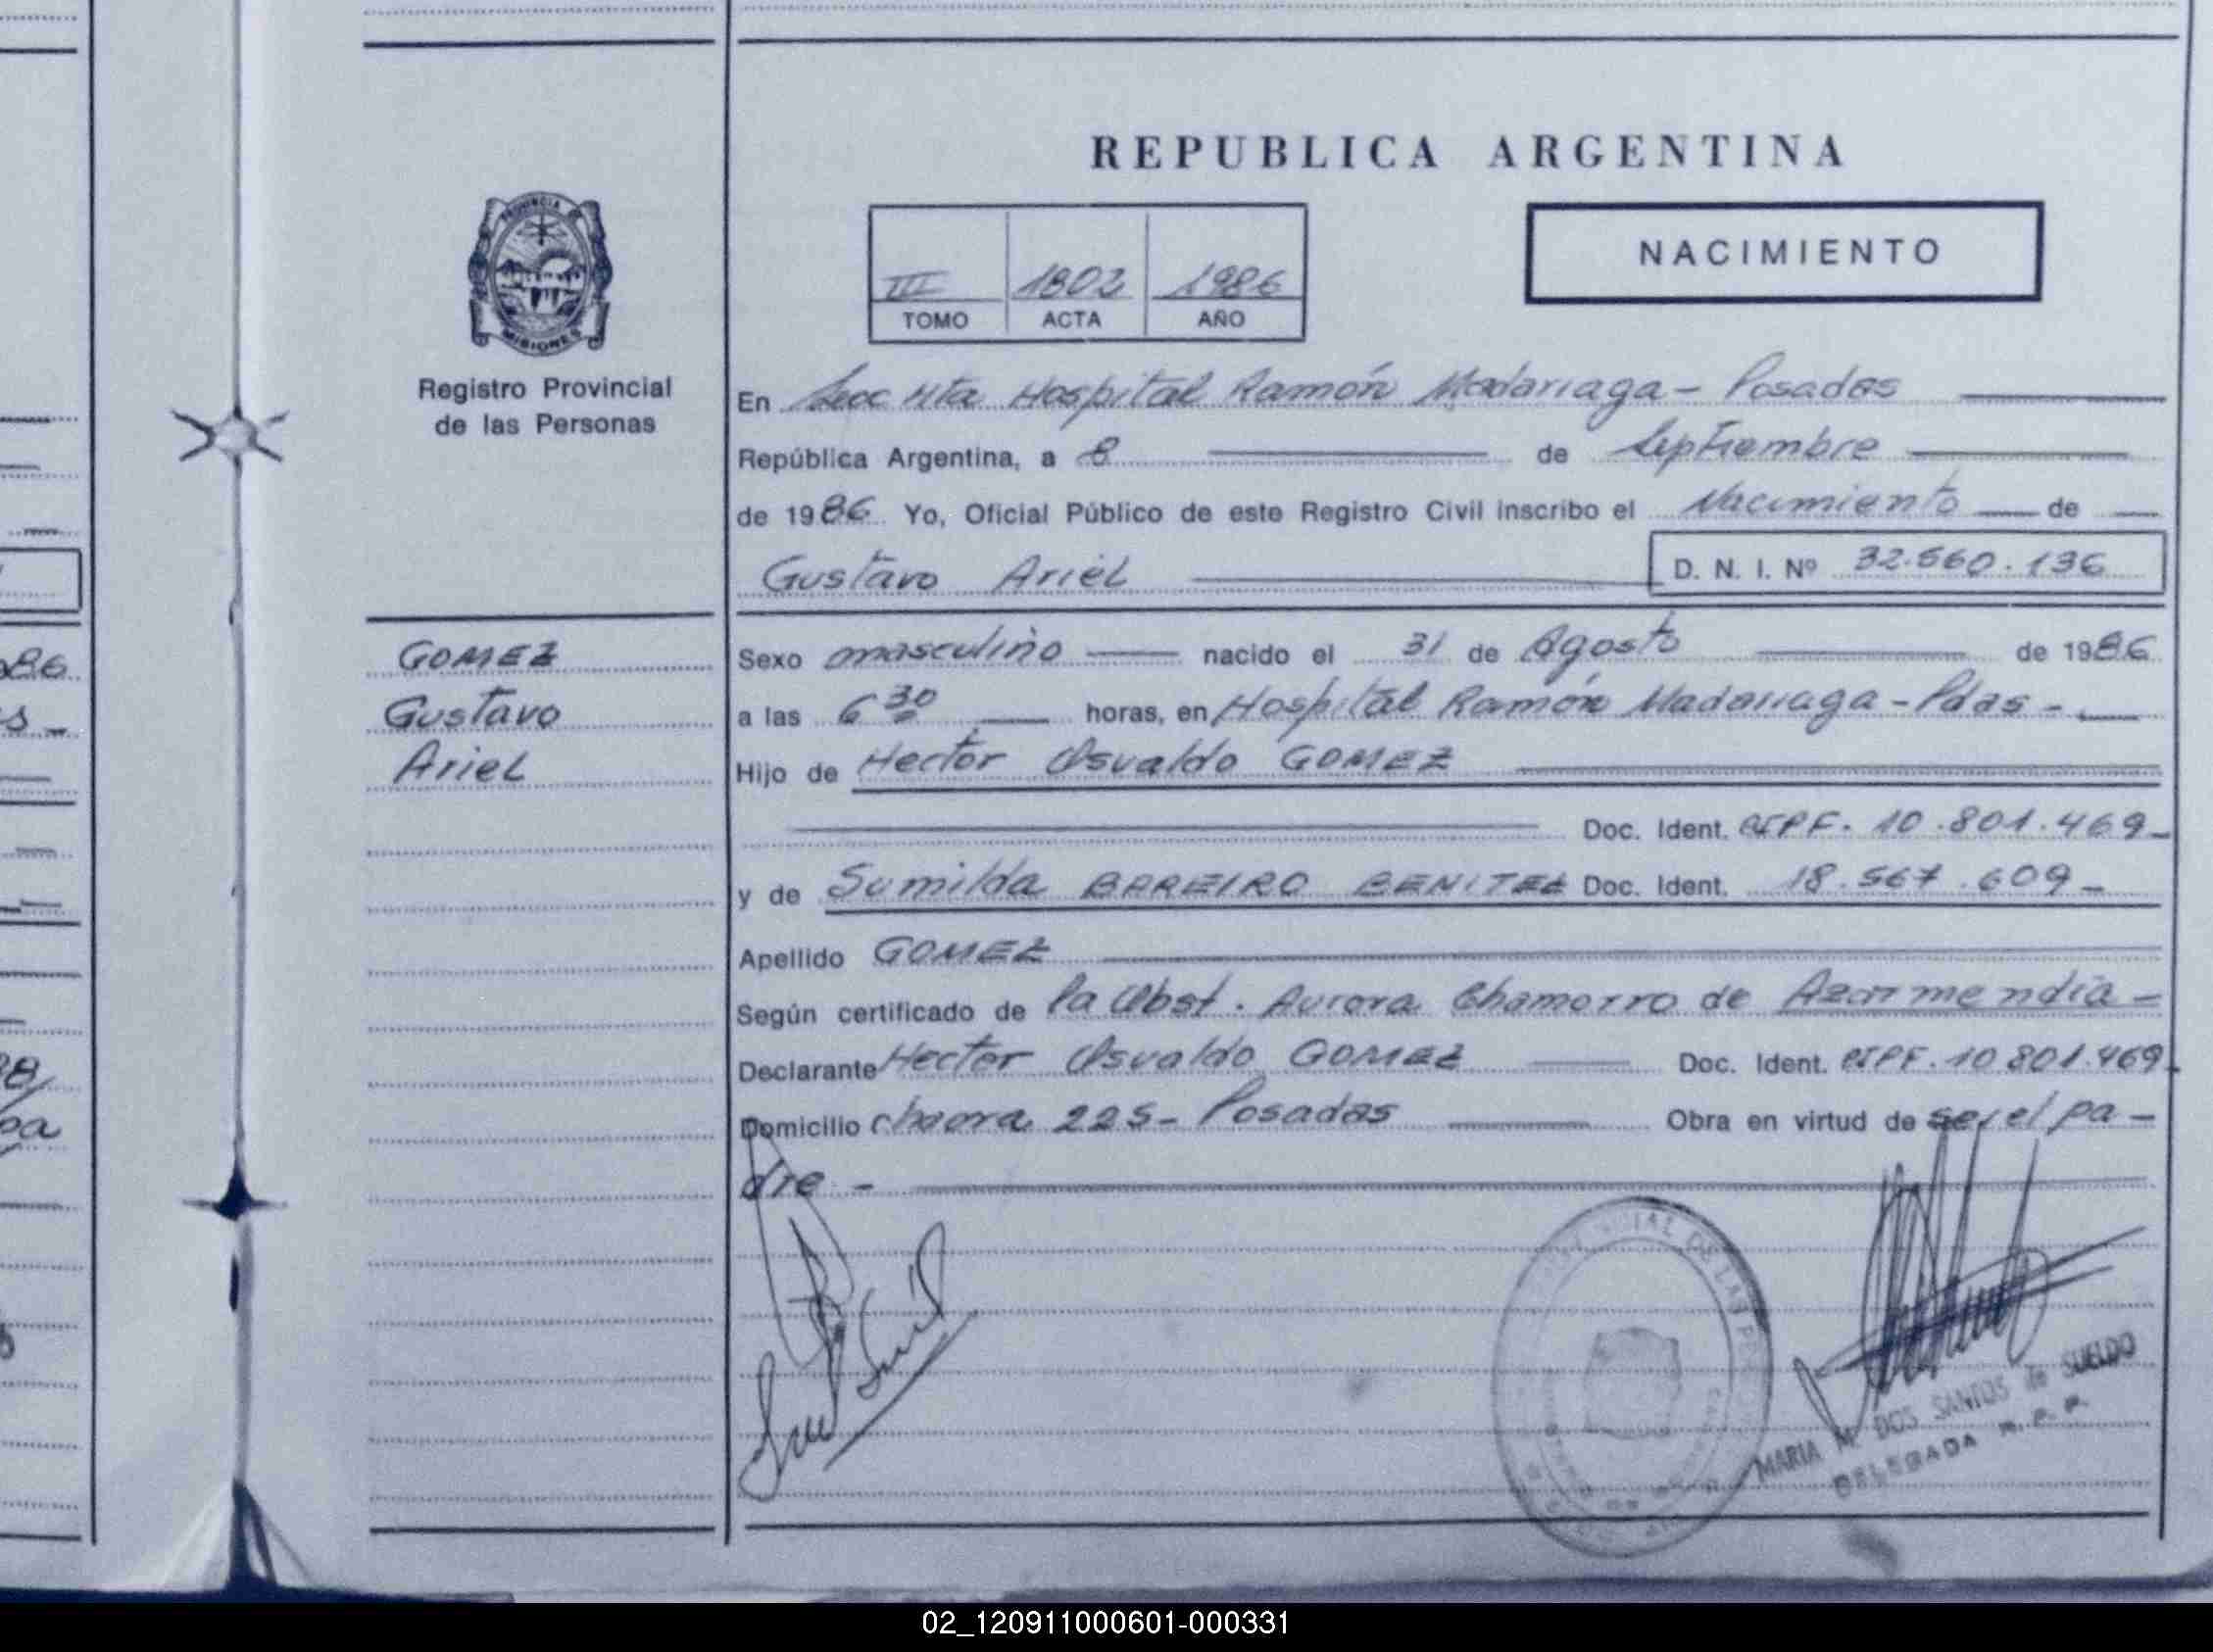 REPUBLICA ARGENTINA
PROVINCIA DE
MISIONES
Registro Provincial
de las Personas
III 1802 1986
TOMO ACTA AÑO
NACIMIENTO
En Secc Hta Hospital Ramón Madariaga - Posadas
República Argentina, a 8 de Septiembre
de 1986 Yo, Oficial Público de este Registro Civil inscribo el Nacimiento de
Gustavo Ariel D. N. I. Nº 32.560.136
GOMEZ
Gustavo
Ariel
Sexo masculino nacido el 31 de Agosto de 1986
a las 6 30 horas, en Hospital Ramón Madariaga - Pdas -
Hijo de Hector Osvaldo GOMEZ
Doc. Ident. CIPF. 10.801.469 -
y de Sumilda BAREIRO BENITEZ Doc. Ident. 18.567.609 -
Apellido GOMEZ
Según certificado de la Obst. Aurora Chamorro de Azarmendia -
Declarante Hector Osvaldo GOMEZ Doc. Ident. CIPF. 10 801.469.
Domicilio chacra 225 - Posadas Obra en virtud de ser el pa -
dre -
MARIA M. DOS SANTOS de SUELDO
DELEGADA R. P. P.
02_120911000601-000331